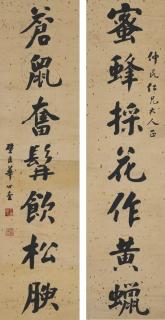 仲民仁兄大人正
蜜蜂採花作黃蠟
蒼鼠奮髯飲松腴
璧臣華世奎